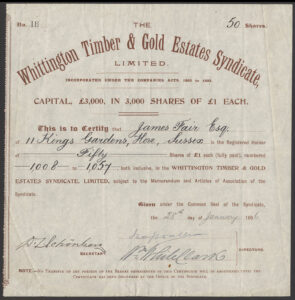 No. 18
THE
50 Shares.
Whittington Timber & Gold Estates Syndicate,
LIMITED.
INCORPORATED UNDER THE COMPANIES ACTS, 1862 to 1893.
CAPITAL, £3,000, IN 3,000 SHARES OF £1 EACH.
This is to Certify that James Fair Esq.
11 Kings Gardens, Hove, Sussex is the Registered Holder
of Fifty Shares of £1 each (fully paid), numbered
1008 to 1057 both inclusive, in the WHITTINGTON TIMBER & GOLD
ESTATES SYNDICATE, LIMITED, subject to the Memorandum and Articles of Association of the
Syndicate.
Given under the Common Seal of the Syndicate,
the 28th day of January 1896
SECRETARY
DIRECTORS.
NOTE.—No Transfer of any portion of the Shares represented by this Certificate will be registered until the
Certificate has been delivered at the Office of the Syndicate.